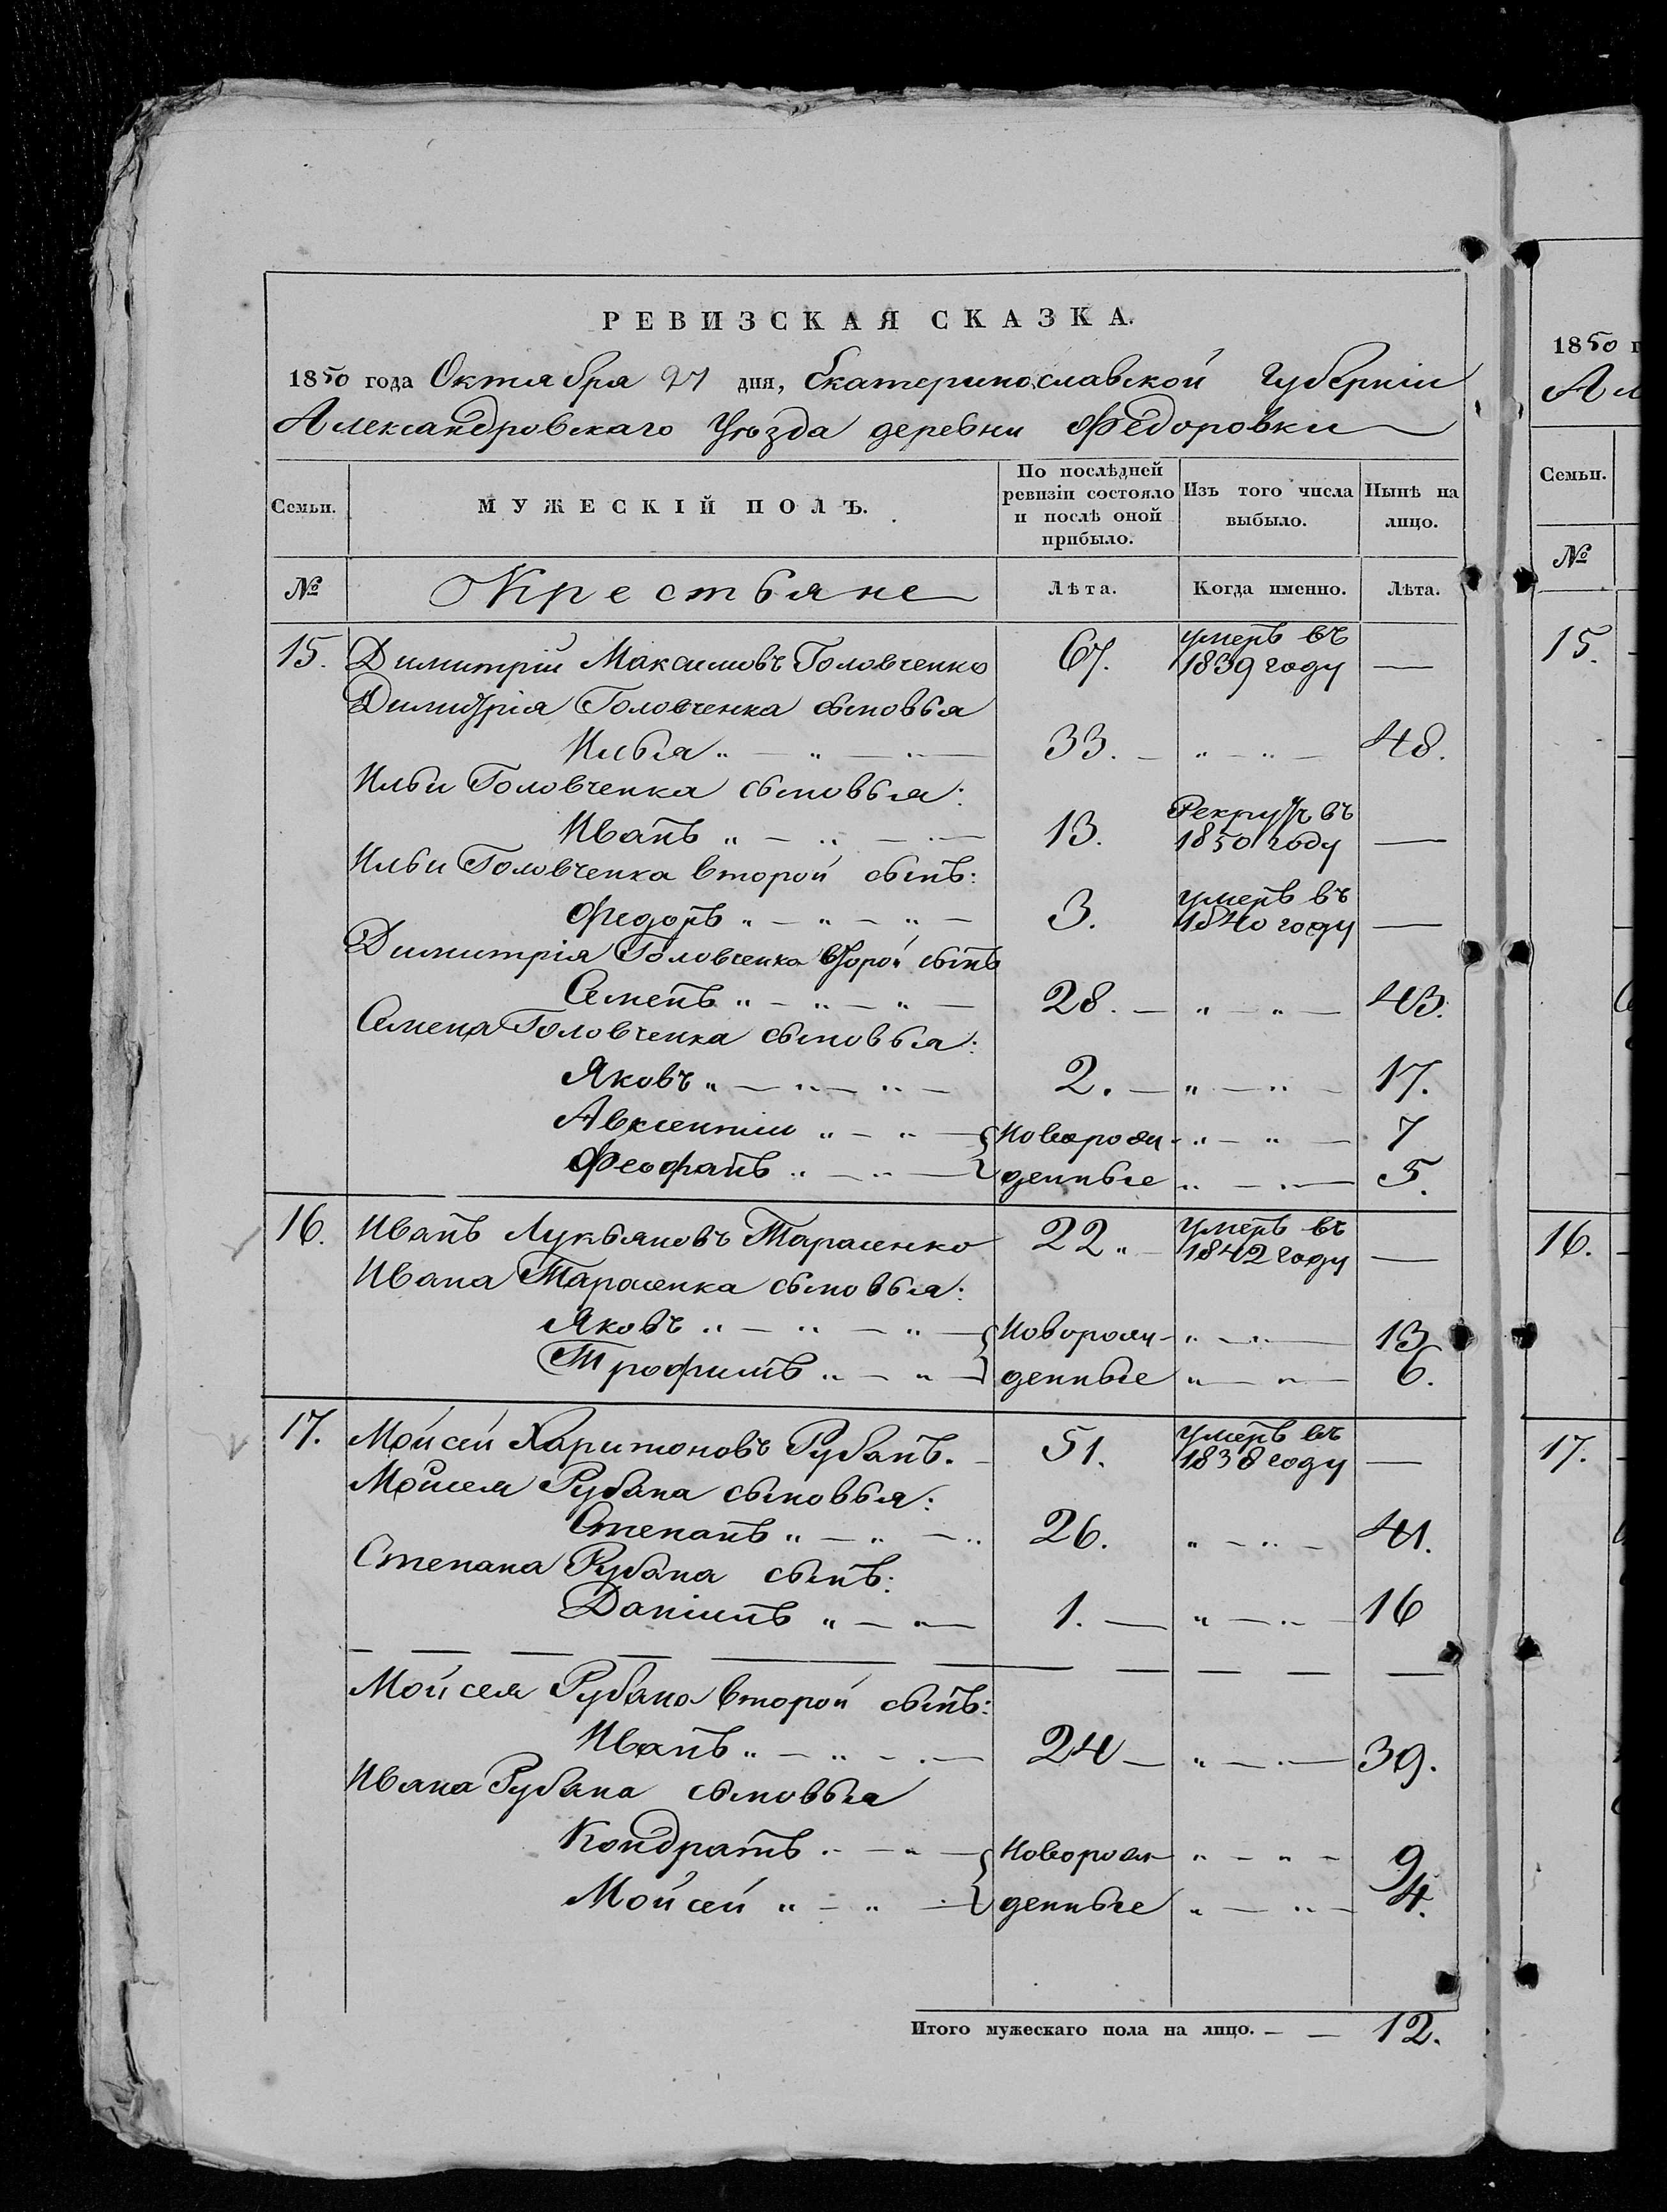 РЕВИЗСКАЯ СКАЗКА.
1850 года Октября 27 дня, Екатеринославской Губерніи
Александровскаго Уѣзда деревни Федоровки
Семьи.
МУЖЕСКІЙ ПОЛЪ.
По послѣдней ревизіи состояло и послѣ оной прибыло.
Изъ того числа выбыло.
Нынѣ на лицо.
№ Крестьяне Лѣта. Когда именно. Лѣта.
15. Димитрій Максимовъ Головченко 67. умеръ въ 1839 году —
Димитрія Головченка сыновья
Илья „ — „ — „ — 33. — „ — „ — 48.
Ильи Головченка сыновья:
Иванъ „ — „ — „ — 13. Рекрутъ въ 1850 году —
Ильи Головченка второй сынъ:
Федоръ „ — „ — „ — 3. умеръ въ 1840 году —
Димитрія Головченка второй сынъ
Семенъ „ — „ — „ — 28. — „ — „ — 43.
Семена Головченка сыновья:
Яковъ „ — „ — „ — 2. — „ — „ — 17.
Авксентій „ — „ — новорож- „ — „ — 7
Феофанъ „ — „ — денные „ — „ — 5.
16. Иванъ Лукьяновъ Тарасенко 22 „ — умеръ въ 1842 году —
Ивана Тарасенка сыновья:
Яковъ „ — „ — „ — новорож- „ — „ — 13
Трофимъ „ — „ — денные „ — „ — 6.
17. Мойсей Харитоновъ Рубанъ. — 51. умеръ въ 1838 году —
Мойсея Рубана сыновья:
Степанъ „ — „ — „ 26. „ — „ — 41.
Степана Рубана сынъ:
Даніилъ „ — „ — 1. — „ — „ — 16
Мойсея Рубана второй сынъ:
Иванъ „ — „ — „ — 24 — „ — „ — 39.
Ивана Рубана сыновья
Кондратъ „ — „ — новорож- „ — „ — 9
Мойсей „ — „ — денные „ — „ — 4.
Итого мужескаго пола на лицо. — — 12.
1850 г
Ал
Семьи.
№
15.
16.
17.